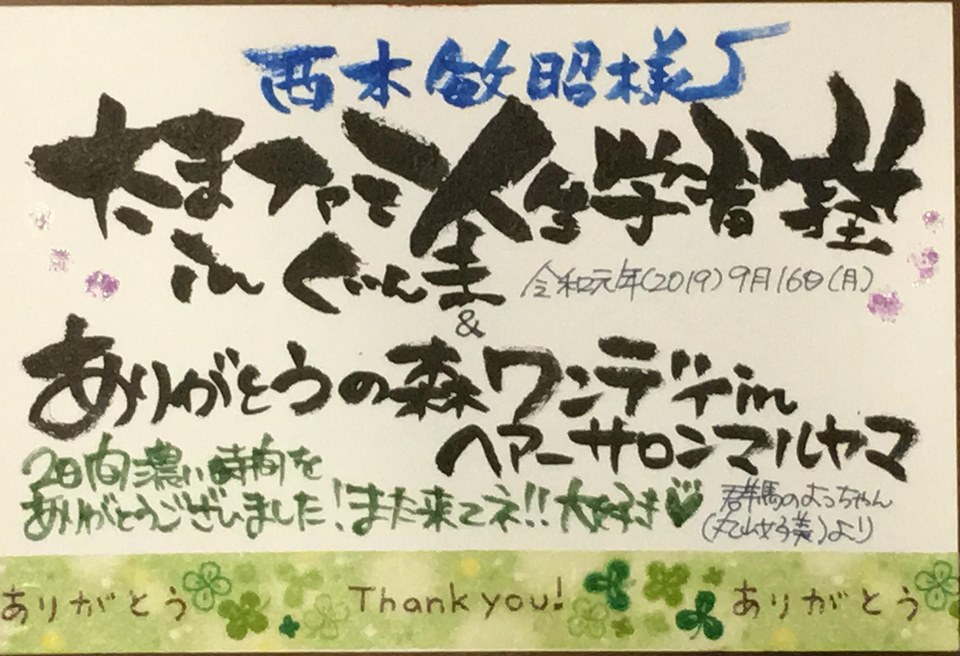 西木敏昭様
たまちゃん人生学者塾
in ぐんま
令和元年(2019)9月16日(月)
&
ありがとうの森ワンディin
ヘアーサロンマルヤマ
2日間濃い時間を
ありがとうございました!また来てネ!!大好き♥
群馬のよっちゃん
(丸山好美)より
ありがとう Thank you! ありがとう